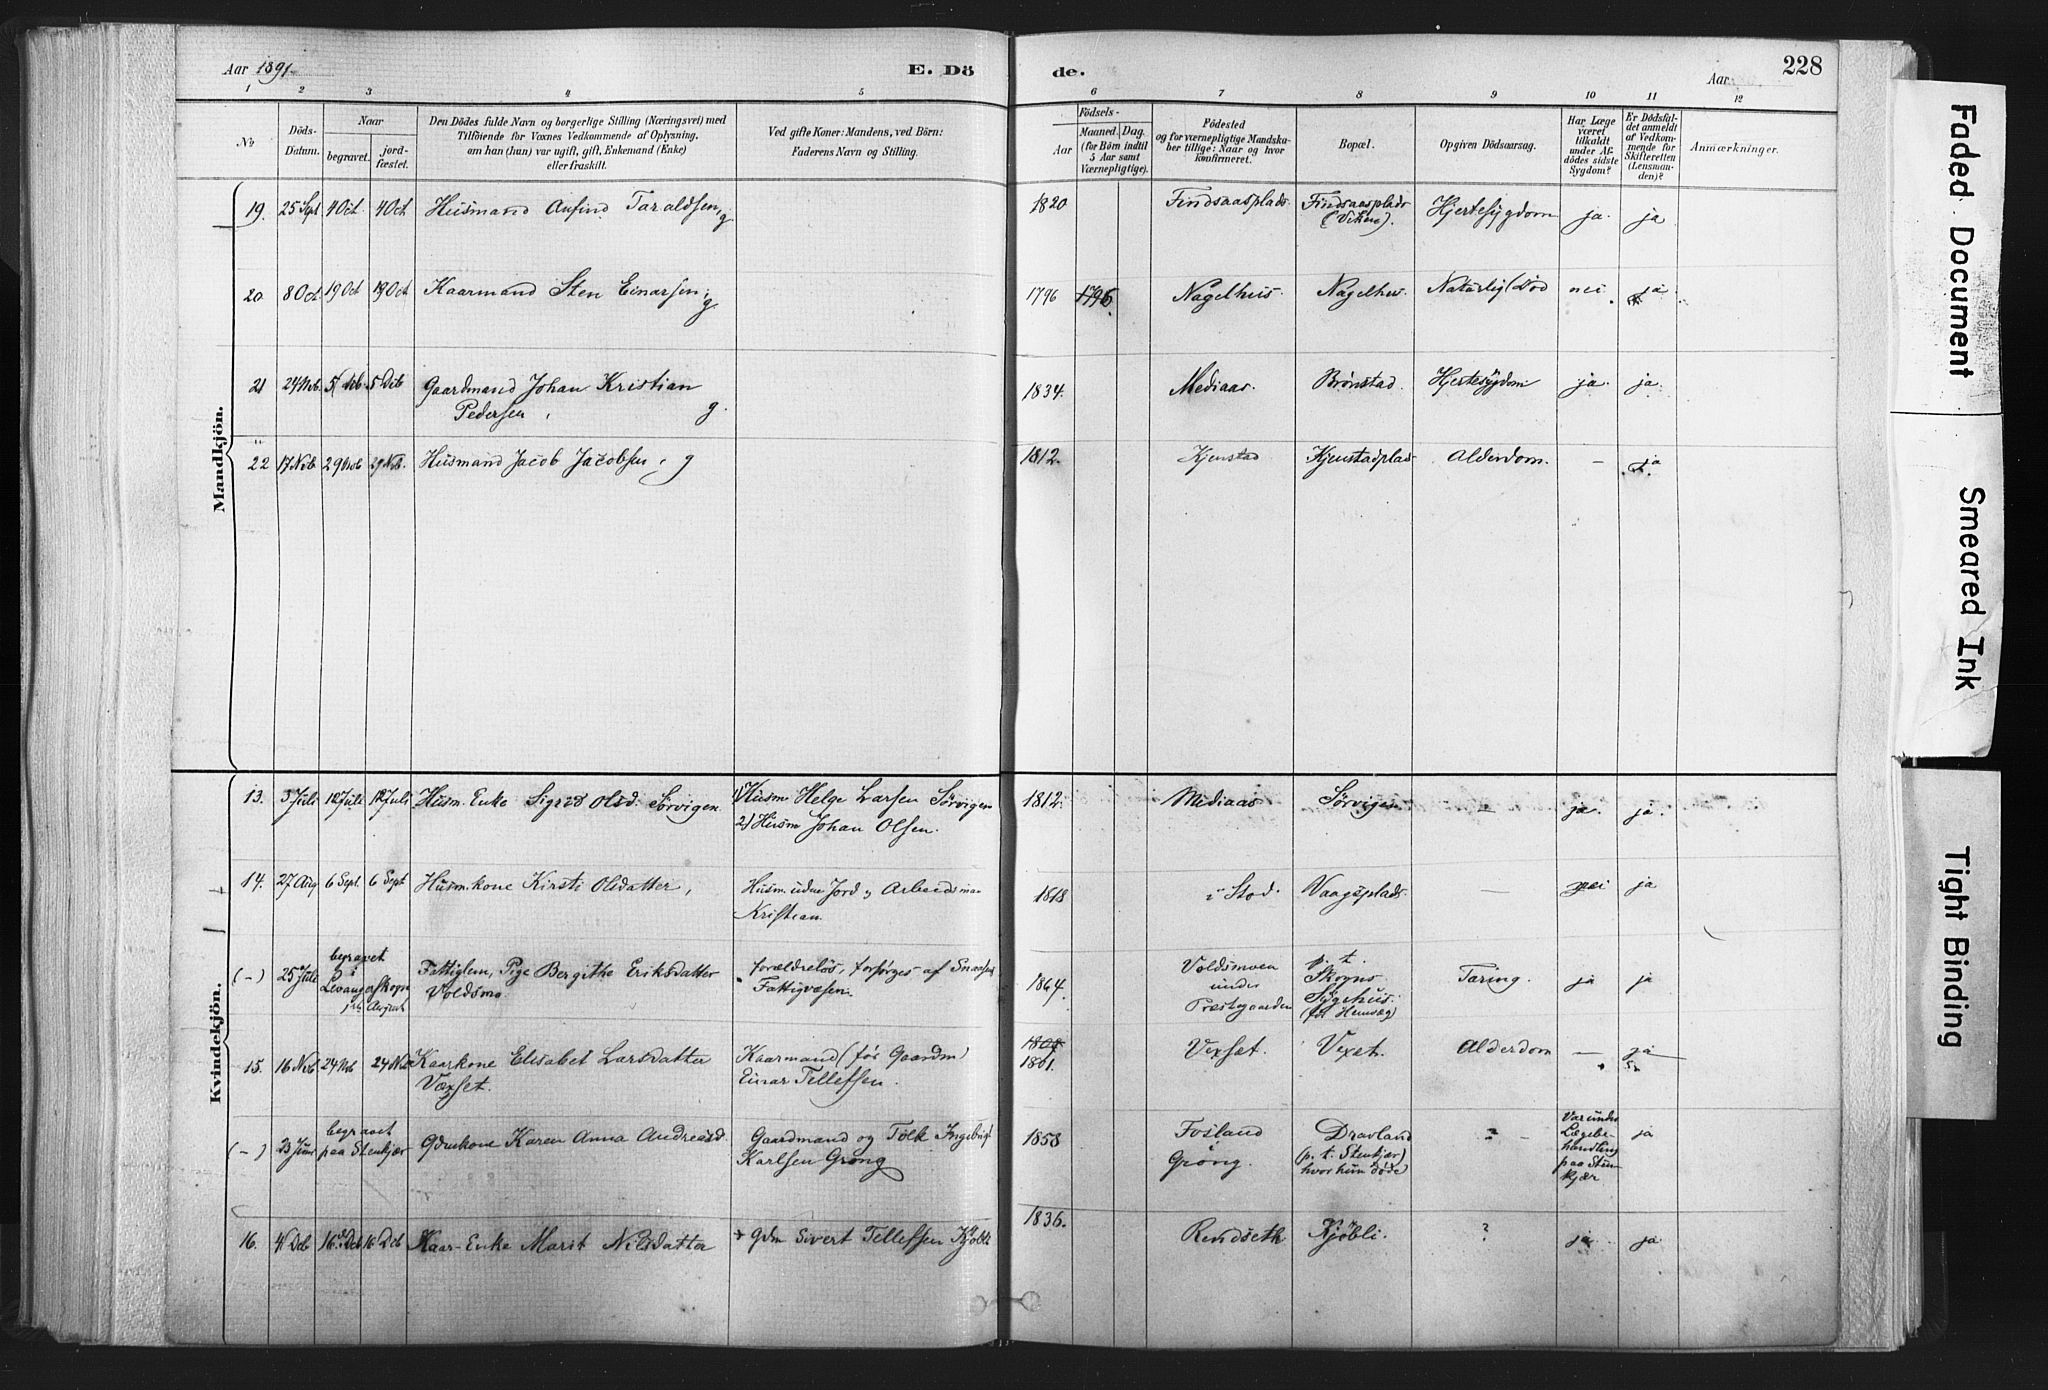 Aar 1891.
E. Dö
de.
Aar
228
1 2 3 4 5 6 7 8 9 10 11 12
No
Döds-
Datum.
Naar
begravet.
jord-
fæstet.
Den Dödes fulde Navn og borgerlige Stilling (Næringsvei) med
Tilföiende for Voxnes Vedkommende af Oplysning,
om han (hun) var ugift, gift, Enkemand (Enke)
eller fraskilt.
Ved gifte Koner: Mandens, ved Börn:
Faderens Navn og Stilling.
Födsels-
Aar
Maaned. Dag.
(for Börn indtil
5 Aar samt
Værnepligtige).
Födested
og for værnepligtige Mandska-
ber tillige: Naar og hvor
konfirmeret.
Bopæl.
Opgiven Dödsaarsag.
Har Læge
været
tilkaldt
under Af-
dödes sidste
Sygdom?
Er Dödsfal-
det anmeldt
af Vedkom-
mende for
Skifteretten
(Lensman-
den)?
Anmærkninger.
Mandkjön.
19. 25 Sept 4 Oct 4 Oct Husmand Anfind Taraldsen, g 1820 Findsaasplads Findsaasplads
(Viken). Hjertesygdom ja. ja
20. 8 Oct 19 Oct 19 Oct Kaarmand Sten Einarsen, g. 1796 1796. Nagelhus. Nagelhus. Naturlig Død nei ja
21 24 Nvb. 5 Dcb. 5 Dcb Gaardmand Johan Kristian
Pedersen, g. 1834. Mediaas. Brønstad. Hjertesygdom ja. ja.
22 17 Nvb 29 Nvb 29 Nvb. Husmand Jacob Jacobsen, g 1812. Kjenstad Kjenstadplads Alderdom. – ja
Kvindekjön.
13. 3 Juli 12 Juli 12 Juli Husm. Enke Sigrid Olsd. Sørvigen. 1) Husm Helge Larsen Sørvigen
2) Husm Johan Olsen. 1812. Mediaas Sørvigen – ja. ja.
14. 27 Aug 6 Sept. 6 Sept Husm.kone Kirsti Olsdatter, Husm. uden Jord og Arbeidsman
Kristian. 1818 i Stod. Vaagsplads. – nei ja
(-) 25 Juli begravet
i
Levanger
Fattiglem, Pige Bergithe Eriksdatter
Voldsmo. forældreløs, forsørges af Snaasens
Fattigvæsen. 1864. Voldsmoen
under
Præstegaarden p. t.
Skogns
Sygehus. Tæring. ja ja
15. 16 Nvb 24 Nvb 24 Nvb Kaarkone Elisabet Larsdatter
Vexset. Kaarmand (før Gaardm)
Einar Tellefsen. 1801. Vexset. Vexset. Alderdom – ja
(-) 23 Juni begravet
paa Stenkjær Gdmkone Karen Anna Andreasd. Gaardmand og Tolk Ingebrigt
Karlsen Grong 1858 Fosland
Grong. Dravland
(p. t. Stenkjær)
hvor hun døde ? – Var under
Lægebe-
handling
paa Sten-
kjær ja
16. 4 Dcb 16 Dcb 16 Dcb Kaar-Enke Marit Nilsdatter Gdm Sivert Tellefsen Kjøbli 1836. Rendseth Kjøbli. ? ja ja
Faded Document
Smeared Ink
Tight Binding